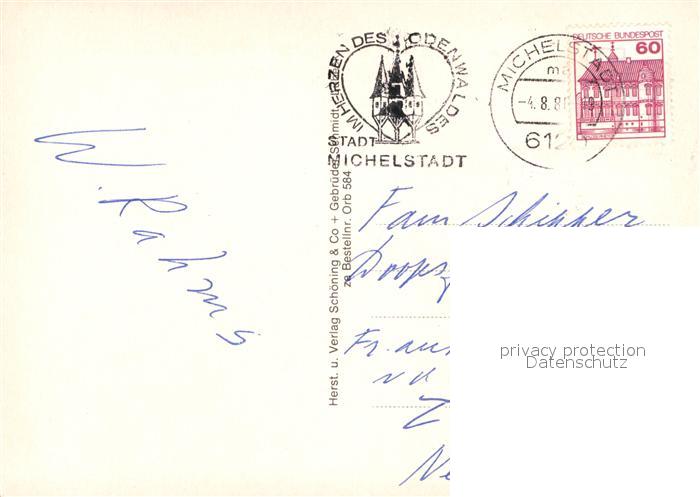 IM HERZEN DES ODENWALDES
STADT
MICHELSTADT
MICHELSTADT
-4.8.8
612
DEUTSCHE BUNDESPOST
60
W. Rahms
Herst. u. Verlag Schöning & Co + Gebrüder Schmidt
Bestellnr. Orb 584
Fam Schipper
privacy protection
Datenschutz